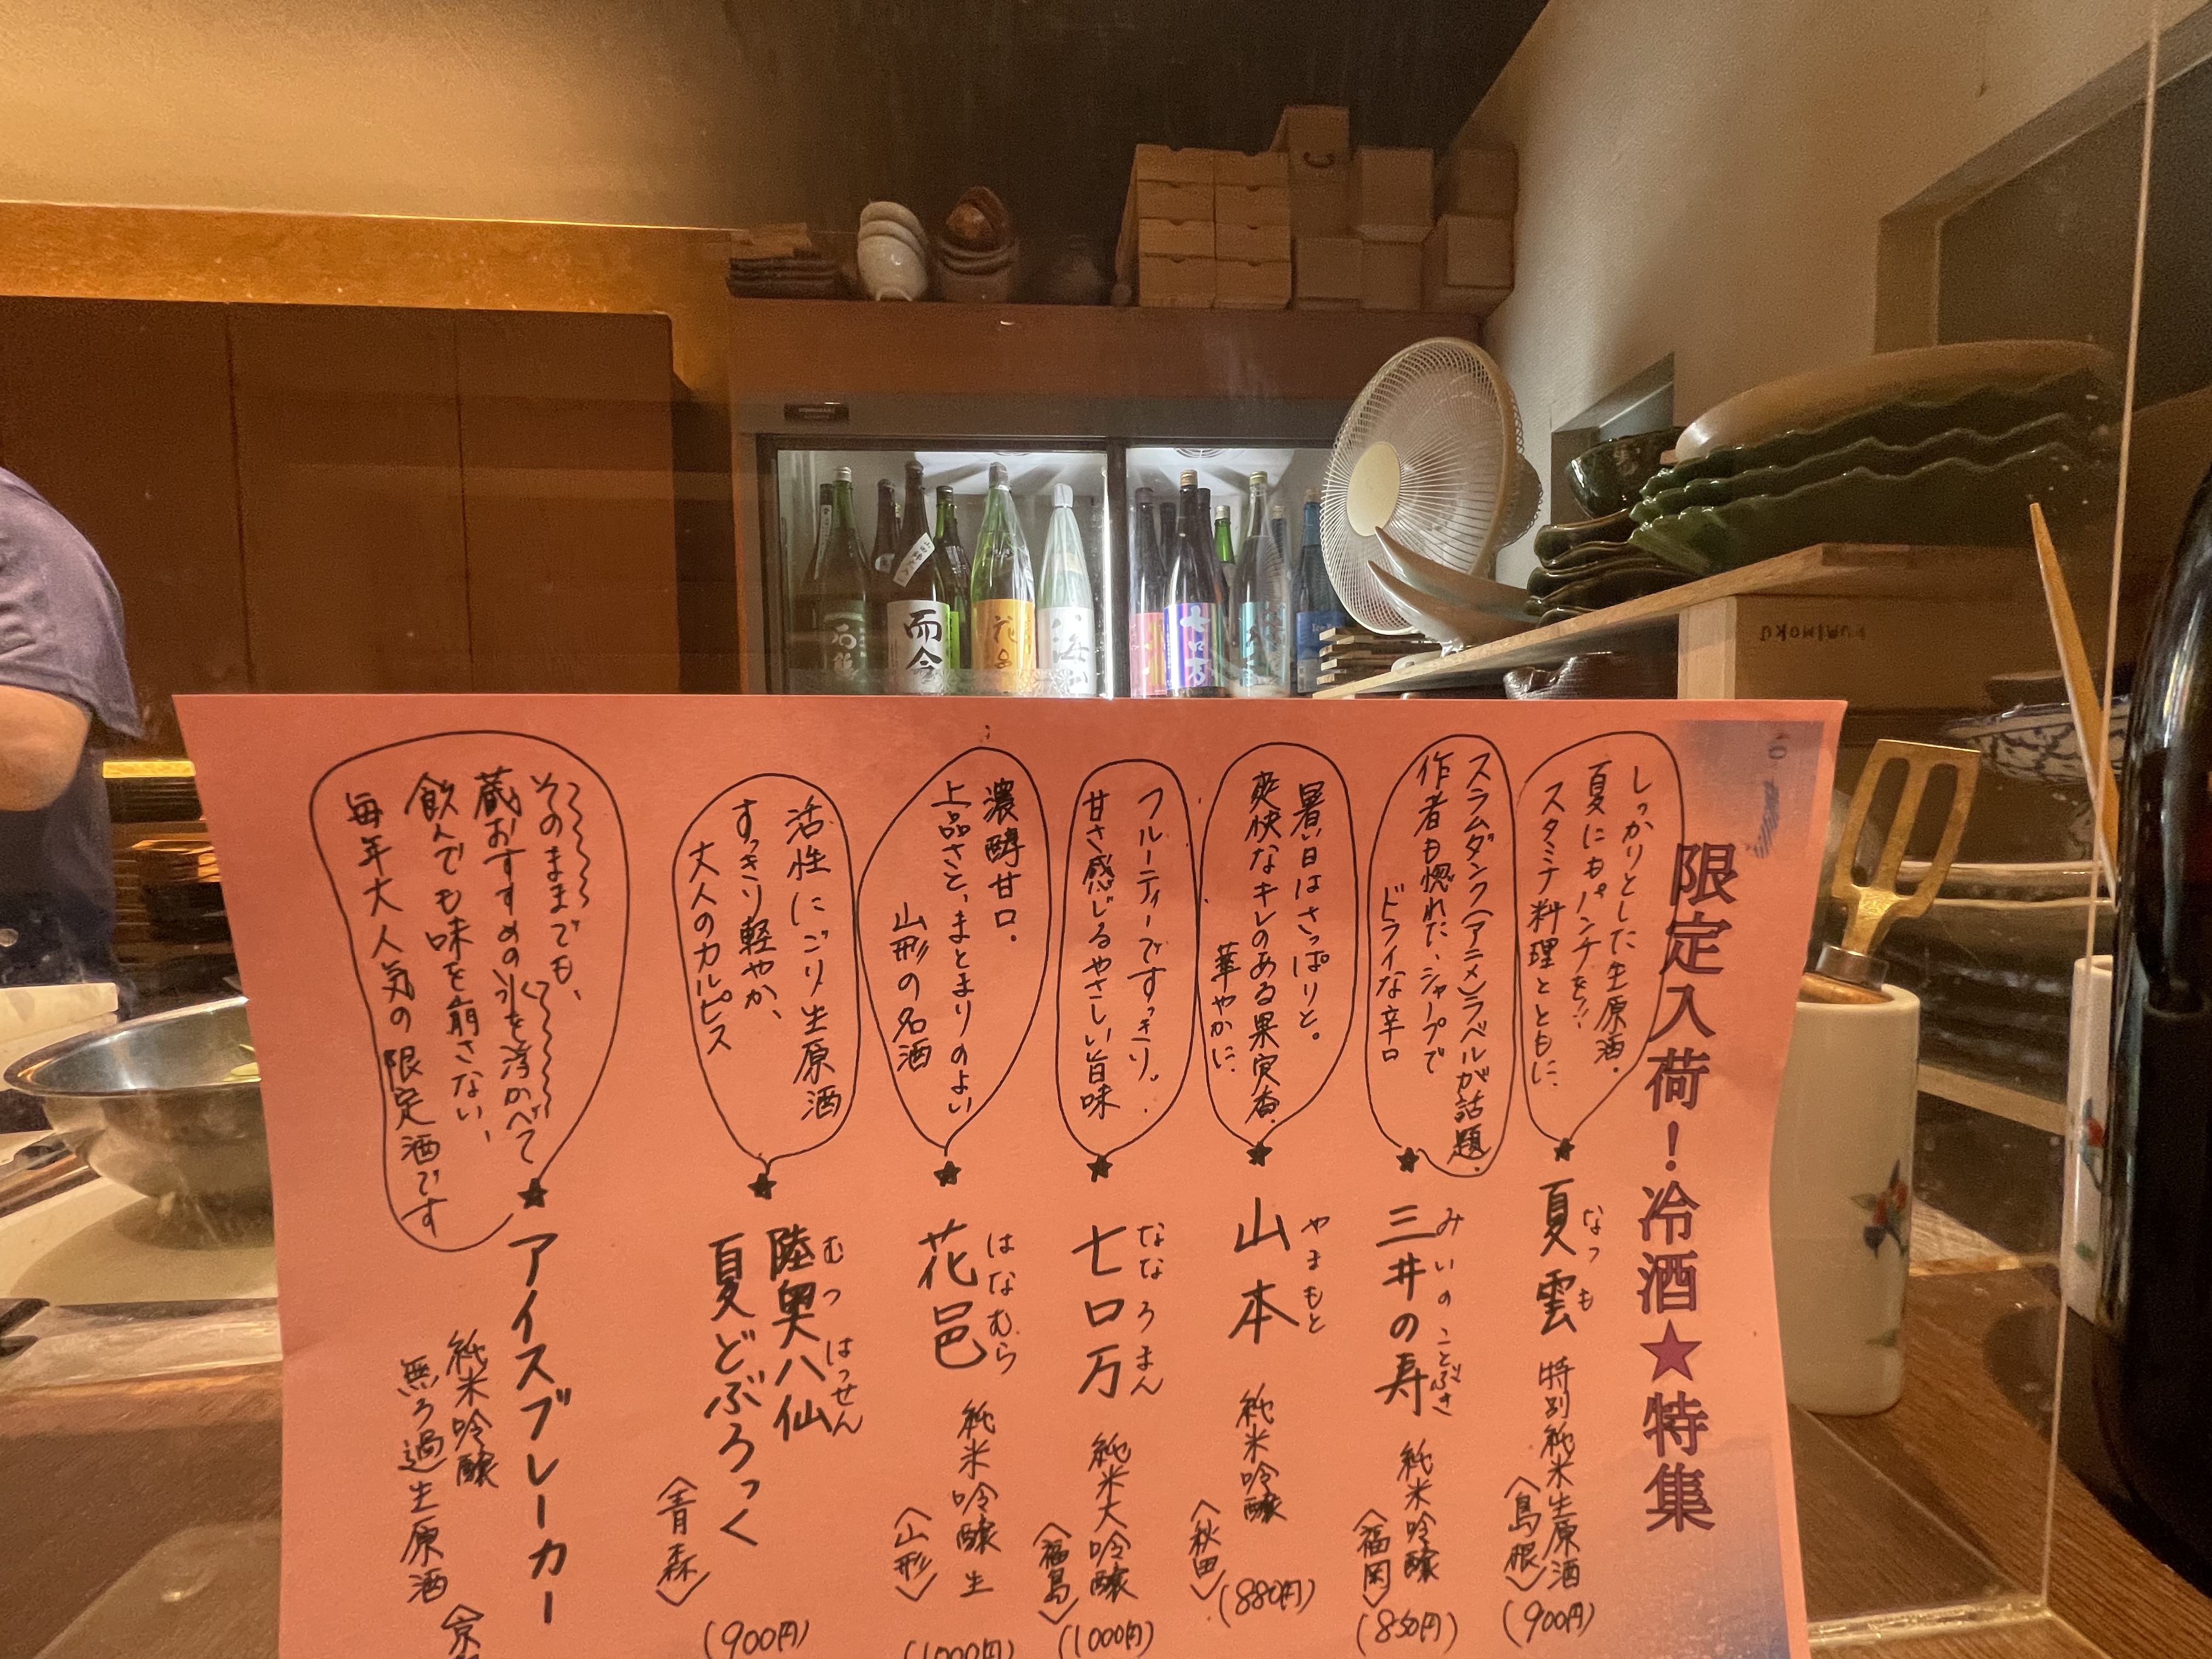 限定入荷！冷酒★特集
しっかりとした生原酒。
夏にもパンチを!!
スタミナ料理とともに。
なつも
夏雲
特別純米生原酒
〈島根〉
(900円)
スラムダンク(アニメ)ラベルが話題。
作者も惚れた、シャープで
ドライな辛口
みいのことぶき
三井の寿
純米吟醸
〈福岡〉
(850円)
暑い日はさっぱりと。
爽快なキレのある果実香。
華やかに。
やまもと
山本
純米吟醸
〈秋田〉
(880円)
フルーティーですっきり。
甘さ感じるやさしい旨味
ななろまん
七ロ万
純米大吟醸
〈福島〉
(1000円)
濃醇甘口。
上品さと、まとまりのよい
山形の名酒
はなむら
花邑
純米吟醸生
〈山形〉
(1000円)
活性にごり生原酒
すっきり軽やか、
大人のカルピス
むつはっせん
陸奥八仙
夏どぶろっく
〈青森〉
(900円)
そのままでも、
蔵おすすめの氷を浮かべて
飲んでも味を崩さない、
毎年大人気の限定酒です
アイスブレーカー
純米吟醸
無ろ過生原酒
〈京
而今
花邑
七ロ万
KUMIMOKU